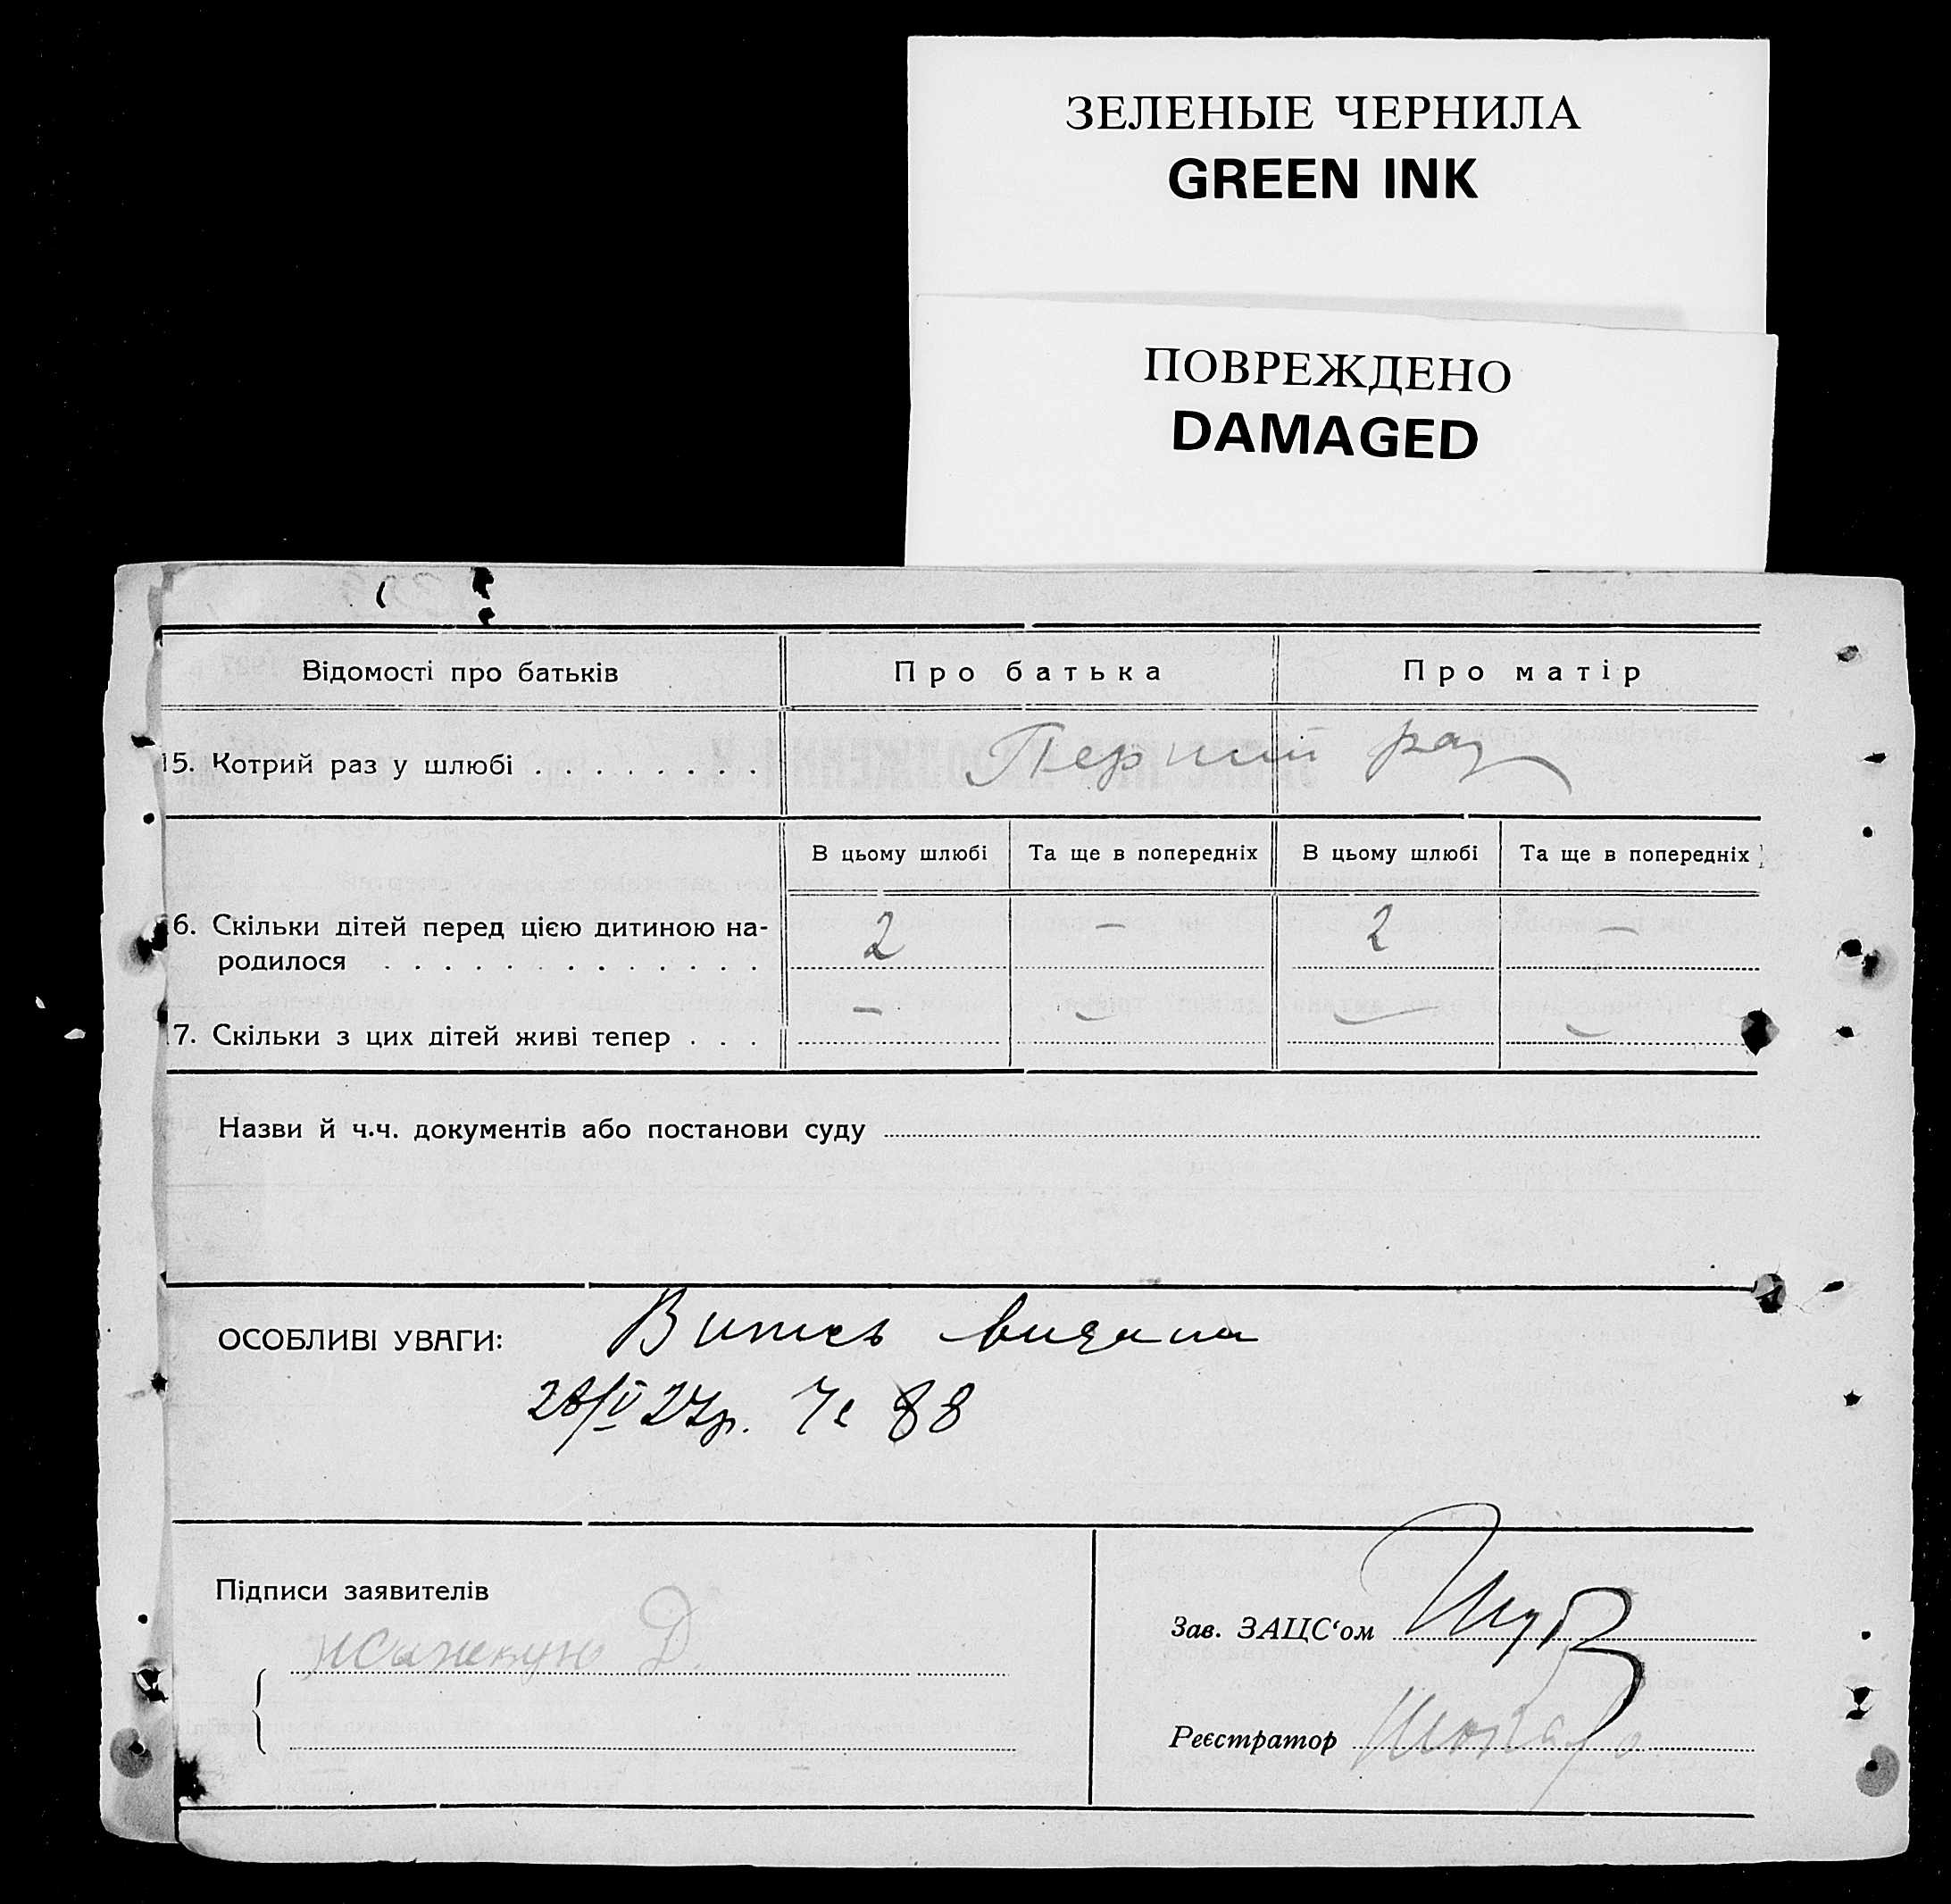 ЗЕЛЕНЫЕ ЧЕРНИЛА
GREEN INK
ПОВРЕЖДЕНО
DAMAGED
Відомості про батьків Про батька Про матір
15. Котрий раз у шлюбі Перший раз
В цьому шлюбі Та ще в попередніх В цьому шлюбі Та ще в попередніх
16. Скільки дітей перед цією дитиною на-
родилося 2 — 2 —
17. Скільки з цих дітей живі тепер — — — —
Назви й ч.ч. документів або постанови суду
ОСОБЛИВІ УВАГИ: Витяг видана
28/V 27р. Че 88
Підписи заявителів
Д.
Зав. ЗАЦС‘ом
Реєстратор